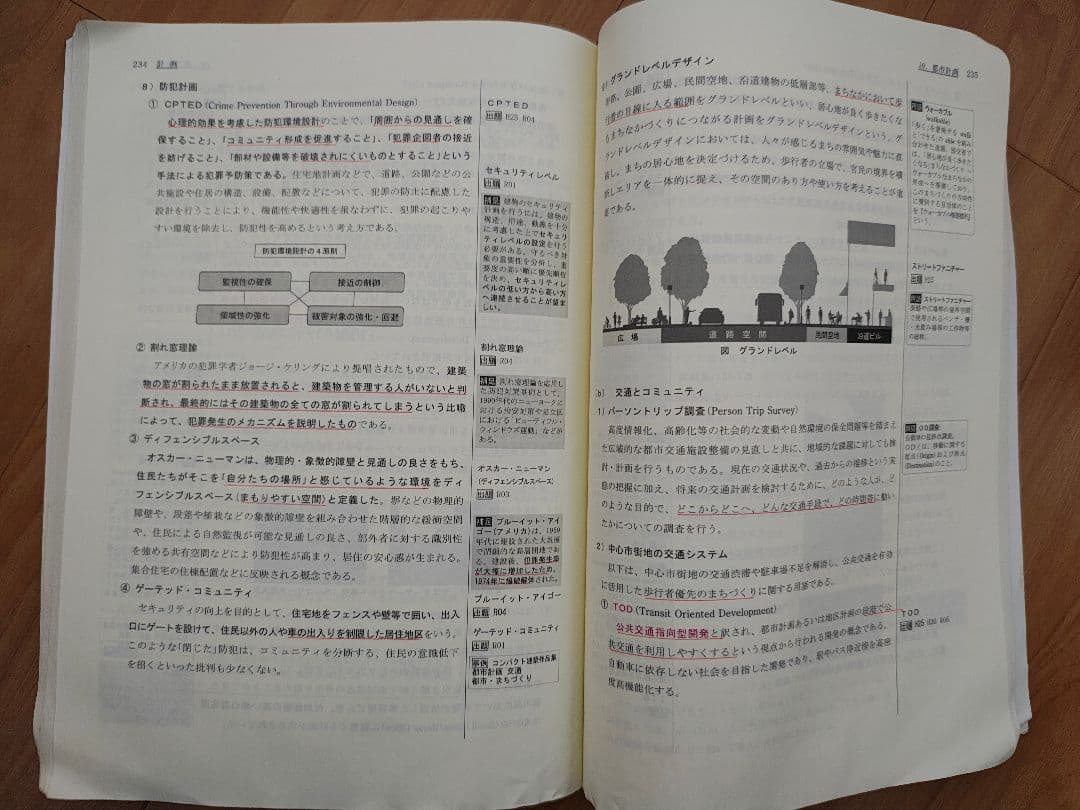 234 計 画
8）防犯計画
① CPTED（Crime Prevention Through Environmental Design）
心理的効果を考慮した防犯環境設計のことで、「周囲からの見通しを確
保すること」、「コミュニティ形成を促進すること」、「犯罪企図者の接近
を妨げること」、「部材や設備等を破壊されにくいものとすること」という
手法による犯罪予防策である。住宅地計画などで、道路、公園などの公
共施設や住居の構造、設備、配置などについて、犯罪の防止に配慮した
設計を行うことにより、機能性や快適性を損なわずに、犯罪の起こりや
すい環境を除去し、防犯性を高めるという考え方である。
防犯環境設計の4原則
監視性の確保
接近の制御
領域性の強化
被害対象の強化・回避
② 割れ窓理論
アメリカの犯罪学者ジョージ・ケリングにより提唱されたもので、建築
物の窓が割られたまま放置されると、建築物を管理する人がいないと判
断され、最終的にはその建築物の全ての窓が割られてしまうという比喩
によって、犯罪発生のメカニズムを説明したものである。
③ ディフェンシブルスペース
オスカー・ニューマンは、物理的・象徴的障壁と見通しの良さをもち、
住民たちがそこを「自分たちの場所」と感じているような環境をディ
フェンシブルスペース（まもりやすい空間）と定義した。塀などの物理的
障壁や、段差や植栽などの象徴的障壁を組み合わせた階層的な緩衝空間
や、住民による自然監視が可能な見通しの良さ、部外者に対する識別性
を強める共有空間などにより防犯性が高まり、居住の安心感が生まれる。
集合住宅の住棟配置などに反映される概念である。
④ ゲーテッド・コミュニティ
セキュリティの向上を目的として、住宅地をフェンスや壁等で囲い、出入
口にゲートを設けて、住民以外の人や車の出入りを制限した居住地区をいう。
このような「閉じた」防犯は、コミュニティを分断する、住民の意識低下
を招くといった批判も少なくない。
CPTED
出題 R25 R04
セキュリティレベル
出題 R01
補足 建物のセキュリティ
計画を行うには、建物の
構造、用途、動線を十分
に考慮した上でセキュリ
ティレベルの設定を行う
必要がある。守るべき対
象の重要性を分析し、重
要度の高い順に優先順位
を決め、セキュリティレ
ベルの低い方から高い方
へ連続させることが望ま
しい。
割れ窓理論
出題 R04
補足 割れ窓理論を応用し
た防犯対策事例として、
1990年代のニューヨークに
おける治安対策や足立区
における「ビューティフル・
ウィンドウズ運動」などが
ある。
オスカー・ニューマン
（ディフェンシブルスペース）
出題 R03
補足 プルーイット・アイ
ゴー（アメリカ）は、1950
年代に建設された大規模
で閉鎖的な高層団地であ
る。建設後、犯罪発生率
が大幅に増加したため、
1974年に爆破解体された。
プルーイット・アイゴー
出題 R04
ゲーテッド・コミュニティ
出題 R01
事例 コンパクト建築作品集
都市計画 交通
都市・まちづくり
10．都市計画 235
グランドレベルデザイン
路、公園、広場、民間空地、沿道建物の低層部等、まちなかにおいて歩
行者の目線に入る範囲をグランドレベルといい、居心地が良く歩きたくな
るまちなかづくりにつながる計画をグランドレベルデザインという。グ
ランドレベルデザインにおいては、人々が感じるまちの雰囲気や魅力に直
結し、まちの居心地を決定づけるため、歩行者の立場で、官民の境界を横
断しエリアを一体的に捉え、その空間のあり方や使い方を考えることが重
要である。
広 場
道 路 空 間
民間空地
沿道ビル
図 グランドレベル
（b） 交通とコミュニティ
1）パーソントリップ調査（Person Trip Survey）
高度情報化、高齢化等の社会的な変動や自然環境の保全問題等を踏まえ
た広域的な都市交通施設整備の見直しと共に、地域的な課題に対しても検
討・計画を行うものである。現在の交通状況や、過去からの推移という実
態の把握に加え、将来の交通計画を検討するために、どのような人が、ど
のような目的で、どこからどこへ、どんな交通手段で、どの時間帯に動い
たかについての調査を行う。
2）中心市街地の交通システム
以下は、中心市街地の交通渋滞や駐車場不足を解消し、公共交通を有効
に活用した歩行者優先のまちづくりに関する用語である。
① TOD（Transit Oriented Development）
公共交通指向型開発と訳され、都市計画あるいは地区計画の段階で公
共交通を利用しやすくするという視点から行われる開発の概念である。
自動車に依存しない社会を目指した開発であり、駅やバス停近傍を高密
度高機能化する。
用語 ウォーカブル
（walkable）
ストリートファニチャー
出題 R25
用語 ストリートファニチャー
道路や広場等の屋外空間
で使用されるベンチ・棚
・水飲み場等の工作物等
の総称。
用語 OD調査
自動車の起終点調査。
ODとは、移動に関する
起点（Origin）および終点
（Destination）のこと。
TOD
出題 R25 R30 R05